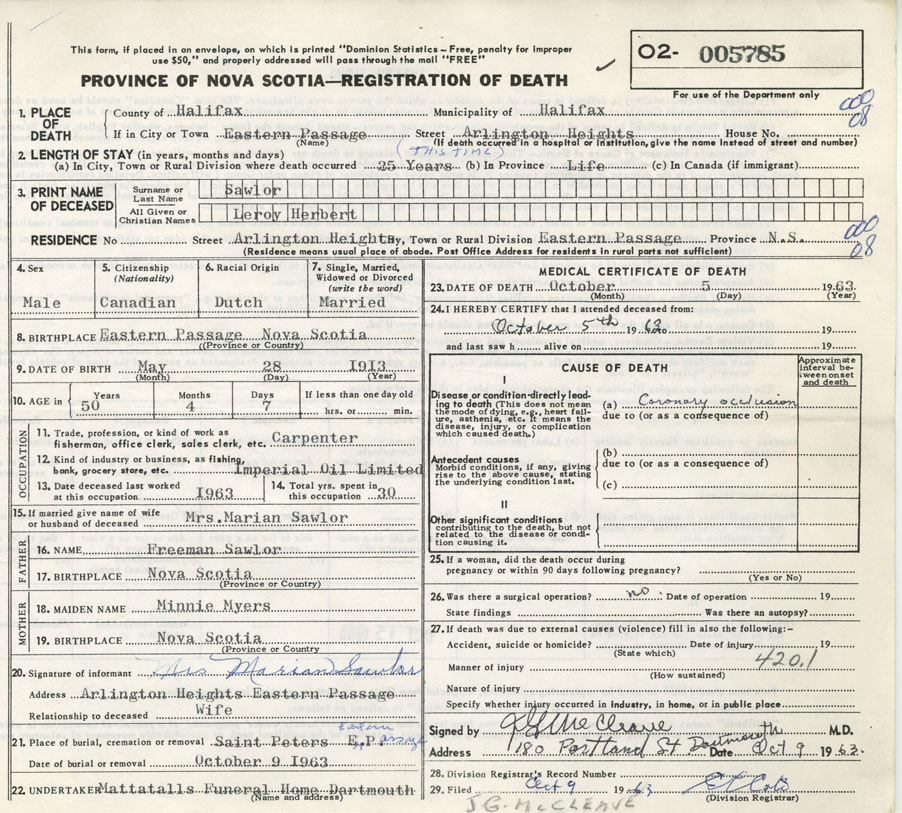 This form, if placed in an envelope, on which is printed "Dominion Statistics – Free, penalty for improper
use $50," and properly addressed will pass through the mail "FREE"
O2- 005785
PROVINCE OF NOVA SCOTIA—REGISTRATION OF DEATH
For use of the Department only
1. PLACE OF DEATH
County of Halifax Municipality of Halifax
000
08
If in City or Town Eastern Passage Street Arlington Heights House No.
(Name) (If death occurred in a hospital or institution, give the name instead of street and number)
2. LENGTH OF STAY (in years, months and days) (THIS TIME)
(a) In City, Town or Rural Division where death occurred 25 Years (b) In Province Life (c) In Canada (if immigrant)
3. PRINT NAME OF DECEASED
Surname or Last Name Sawlor
All Given or Christian Names Leroy Herbert
000
08
RESIDENCE No Street Arlington Heights City, Town or Rural Division Eastern Passage Province N.S.
(Residence means usual place of abode. Post Office Address for residents in rural parts not sufficient)
4. Sex
Male
5. Citizenship (Nationality)
Canadian
6. Racial Origin
Dutch
7. Single, Married, Widowed or Divorced (write the word)
Married
8. BIRTHPLACE Eastern Passage Nova Scotia
(Province or Country)
9. DATE OF BIRTH May 28 1913
(Month) (Day) (Year)
10. AGE in Years Months Days If less than one day old
50 4 7 hrs. or min.
OCCUPATION
11. Trade, profession, or kind of work as
fisherman, office clerk, sales clerk, etc. Carpenter
12. Kind of industry or business, as fishing,
bank, grocery store, etc. Imperial Oil Limited
13. Date deceased last worked
at this occupation 1963
14. Total yrs. spent in
this occupation 30
15. If married give name of wife
or husband of deceased Mrs.Marian Sawlor
FATHER
16. NAME Freeman Sawlor
17. BIRTHPLACE Nova Scotia
(Province or Country)
MOTHER
18. MAIDEN NAME Minnie Myers
19. BIRTHPLACE Nova Scotia
(Province or Country)
20. Signature of informant Mrs Marian Sawlor
Address Arlington Heights Eastern Passage
Relationship to deceased Wife
21. Place of burial, cremation or removal Saint Peters E.P. Eastern Passage
Date of burial or removal October 9 1963
22. UNDERTAKER Mattatalls Funeral Home Dartmouth
(Name and address)
MEDICAL CERTIFICATE OF DEATH
23. DATE OF DEATH October 5 1963
(Month) (Day) (Year)
24. I HEREBY CERTIFY that I attended deceased from:
October 5th 1963 19
and last saw h alive on 19
CAUSE OF DEATH
Approximate interval between onset and death
I
Disease or condition directly leading to death (This does not mean
the mode of dying, e.g., heart failure, asthenia, etc. It means the
disease, injury, or complication
which caused death.)
(a) Coronary occlusion
due to (or as a consequence of)
Antecedent causes
Morbid conditions, if any, giving
rise to the above cause, stating
the underlying condition last.
(b)
due to (or as a consequence of)
(c)
II
Other significant conditions
contributing to the death, but not
related to the disease or condition causing it.
25. If a woman, did the death occur during
pregnancy or within 90 days following pregnancy?
(Yes or No)
26. Was there a surgical operation? no Date of operation 19
State findings Was there an autopsy?
27. If death was due to external causes (violence) fill in also the following:–
Accident, suicide or homicide? Date of injury 19
(State which)
420.1
Manner of injury
(How sustained)
Nature of injury
Specify whether injury occurred in industry, in home, or in public place.
Signed by JG McCleave M.D.
Address 180 Portland St Dartmouth Date Oct 9 1963
28. Division Registrar's Record Number
29. Filed Oct 9 1963
(Division Registrar)
JG. McCLEAVE